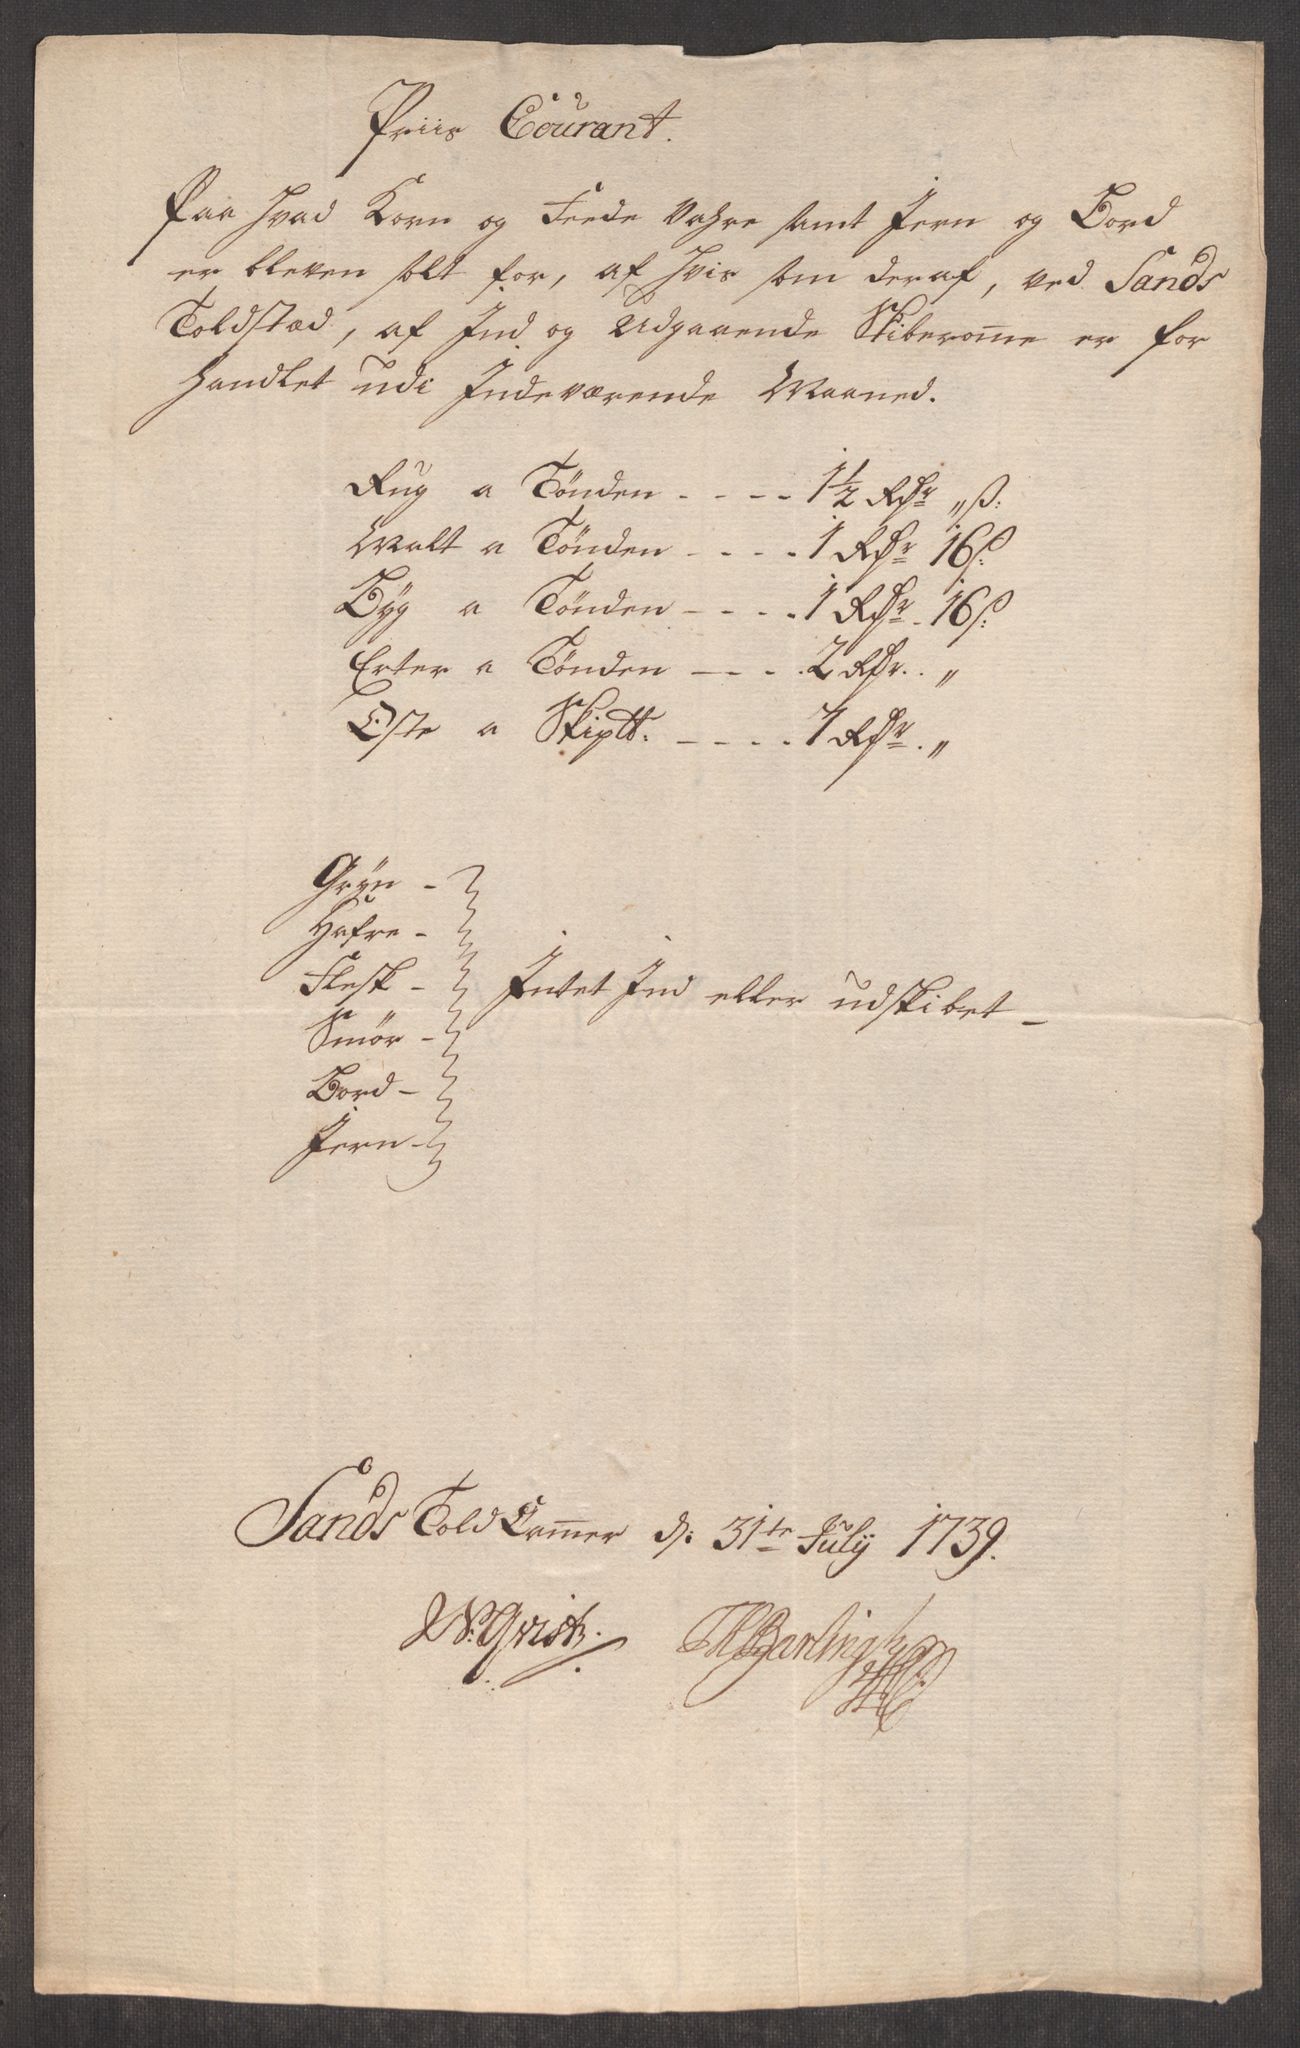 Priis Courant.
Paa hvad Korn og Feede Vahre samt Jern og Bord
er bleven solt for, af hvis som deraf, ved Sands
Toldstæd, af Ind og Udgaaende Skiberom̅e er for
handlet udi Indeværende Maaned.
Rug a Tønden - - - - 1½ Rdr „ ß:
Malt a Tønden - - - - 1 Rdr 16 ß:
Byg a Tønden - - - - 1 Rdr. 16 ß:
Erter a Tønden - - - - 2 Rdr. „
Oste a Skiptt: - - - - 7 Rdr. „
Grÿn -
Hafre -
Flesk - Intet Ind eller udskibet -
Smør -
Bord -
Jern -
Sands Told Cam̅er d: 31te July 1739.